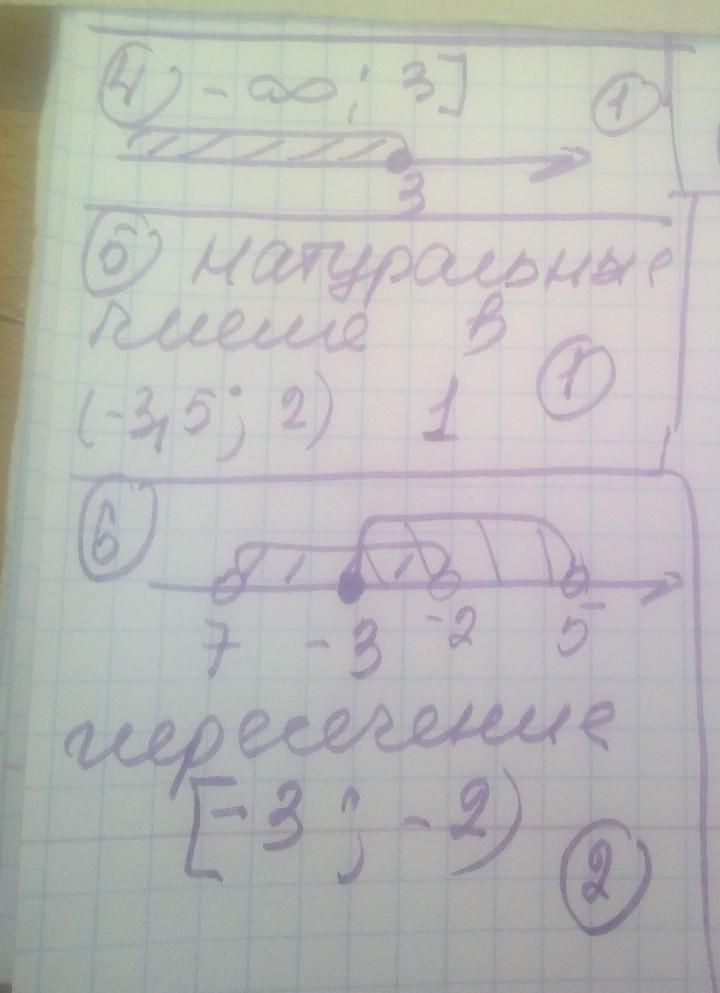 4) -∞; 3]
1
3
5) натуральные
числа в
(-3,5; 2) 1
1
6
7 -3 -2 5
пересечение
[-3; -2)
2